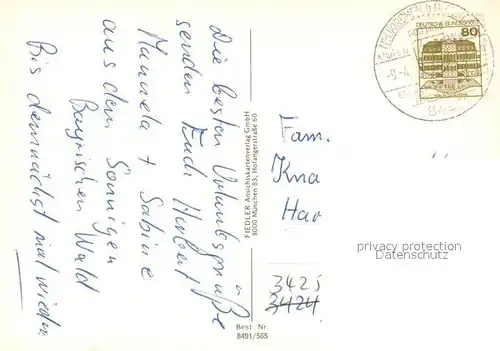 Die besten Urlaubsgrüße
senden Euch Herbert
Manuela + Sabine
aus dem Sonnigen
Bayrischen Wald
Bis demnächst mal wieder
FIEDLER Ansichtskartenverlag GmbH
8000 München 83, Hofangerstraße 60
DEUTSCHE BUNDESPOST
80
Fam.
Kna
Har
privacy protection
Datenschutz
3425
3424
Best. Nr.
8491/565